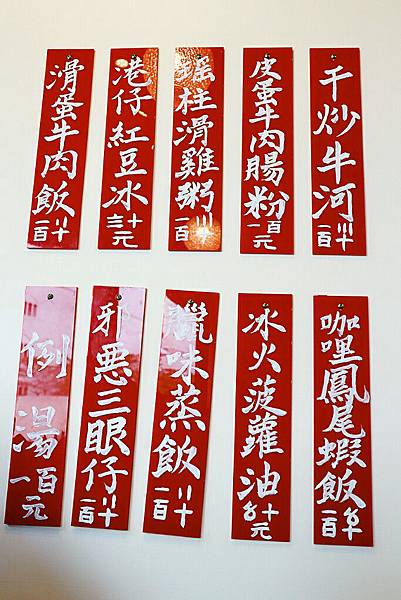 干炒牛河
一百〣十
皮蛋牛肉腸粉
一百元
瑤柱滑雞粥
一百〣十
港仔紅豆冰
十元
滑蛋牛肉飯
一百〣十
咖哩鳳尾蝦飯
一百〥十
冰火菠蘿油
〥十元
臘味蒸飯
一百〢十
邪惡三眼仔
一百〢十
例湯
一百元